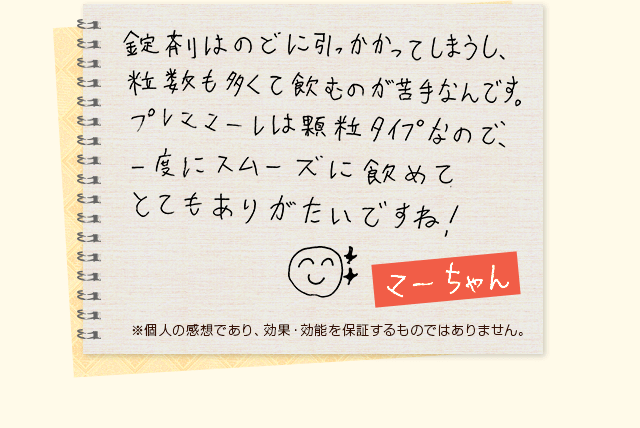 錠剤はのどに引っかかってしまうし、
粒数も多くて飲むのが苦手なんです。
プレママーレは顆粒タイプなので、
一度にスムーズに飲めて
とてもありがたいですね！
マーちゃん
※個人の感想であり、効果・効能を保証するものではありません。